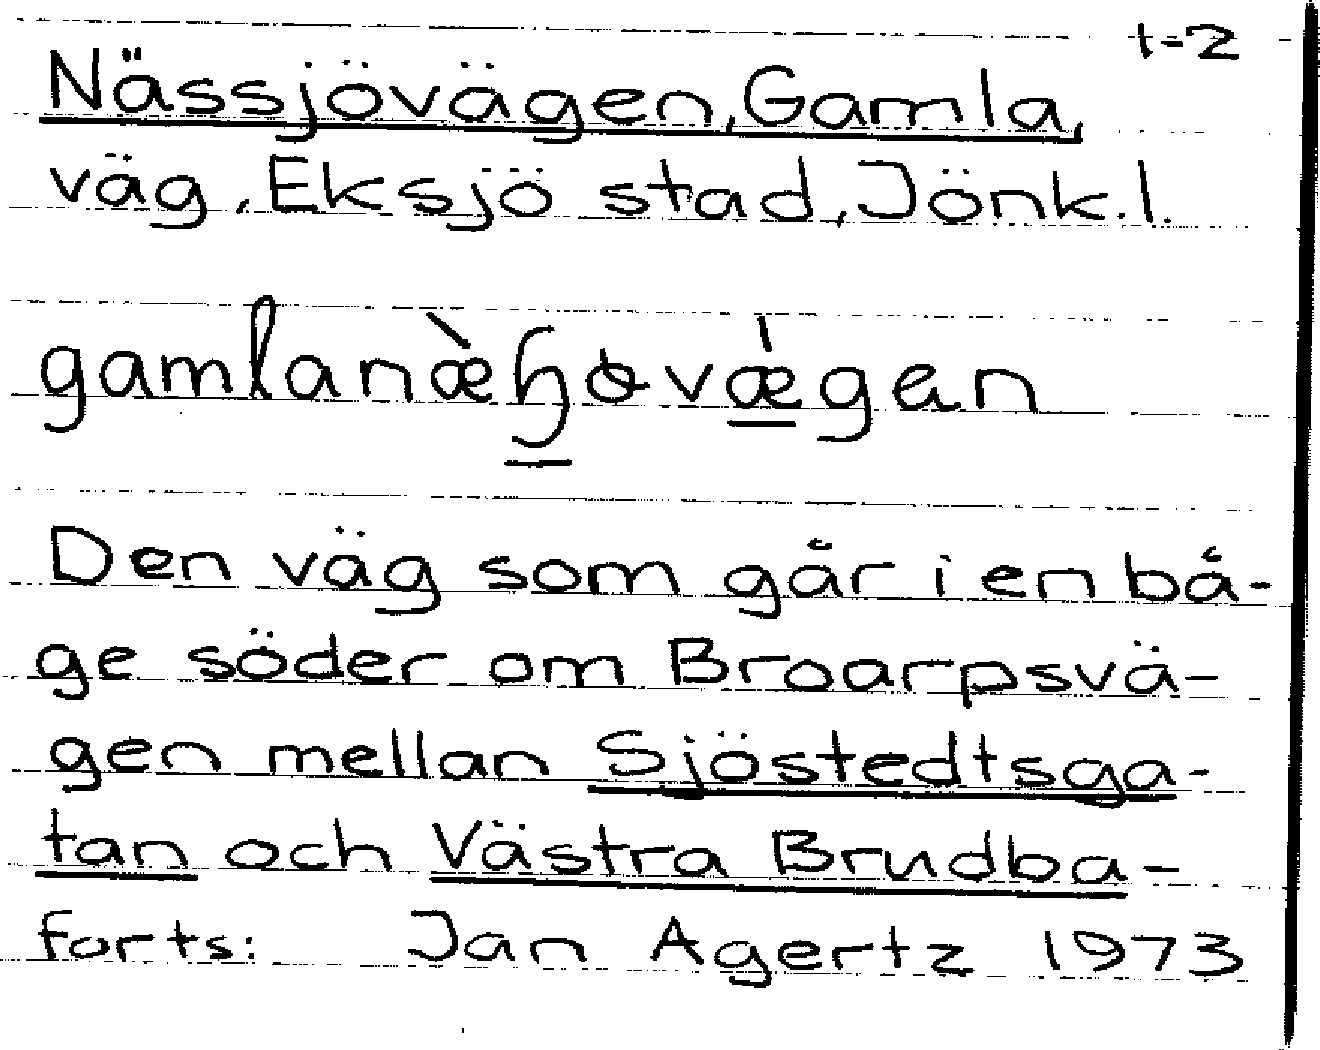 1-2
Nässjövägen, Gamla,
väg, Eksjö stad, Jönk.l.
gamlanæ̀ɧɵvǽgen
Den väg som går i en bå-
ge söder om Broarpsvä-
gen mellan Sjöstedtsga-
tan och Västra Brudba-
forts: Jan Agertz 1973